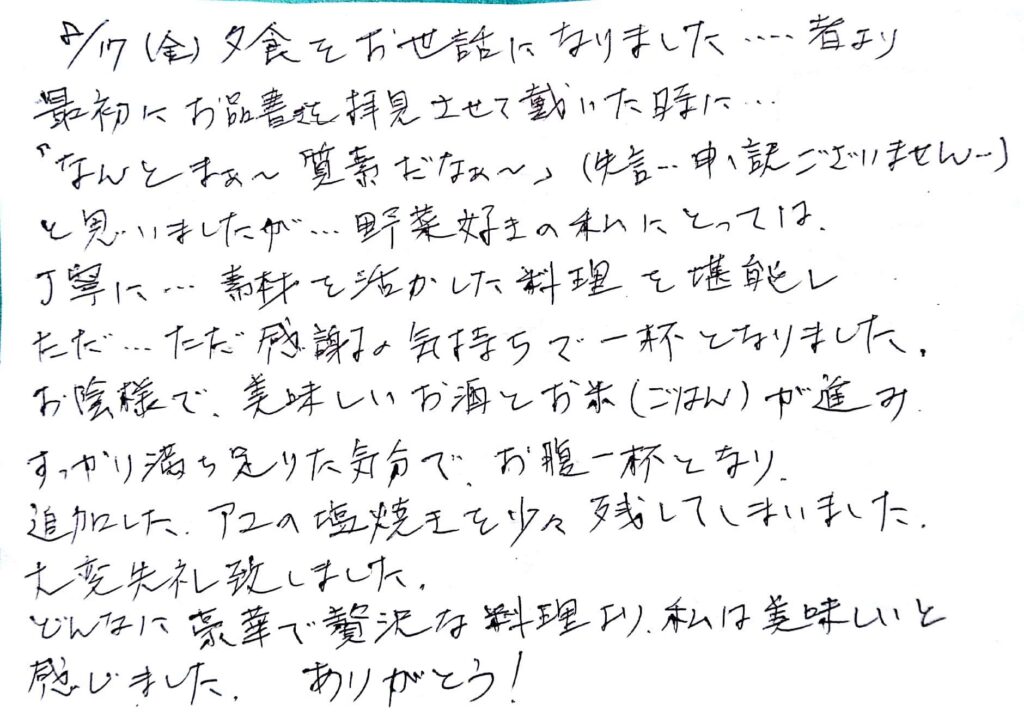 8/17(金)夕食をお世話になりました‥‥者より
最初にお品書きを拝見させて戴いた時に…
「なんとまぁ〜質素だなぁ〜」(失言…申し訳ございません…)
と思いましたが…野菜好きの私にとっては、
丁寧に…素材を活かした料理を堪能し
ただ…ただ感謝の気持ちで一杯となりました。
お陰様で、美味しいお酒とお米(ごはん)が進み
すっかり満ち足りた気分で、お腹一杯となり、
追加した、アユの塩焼きを少々残してしまいました。
大変失礼致しました。
どんなに豪華で贅沢な料理より、私は美味しいと
感じました。 ありがとう!